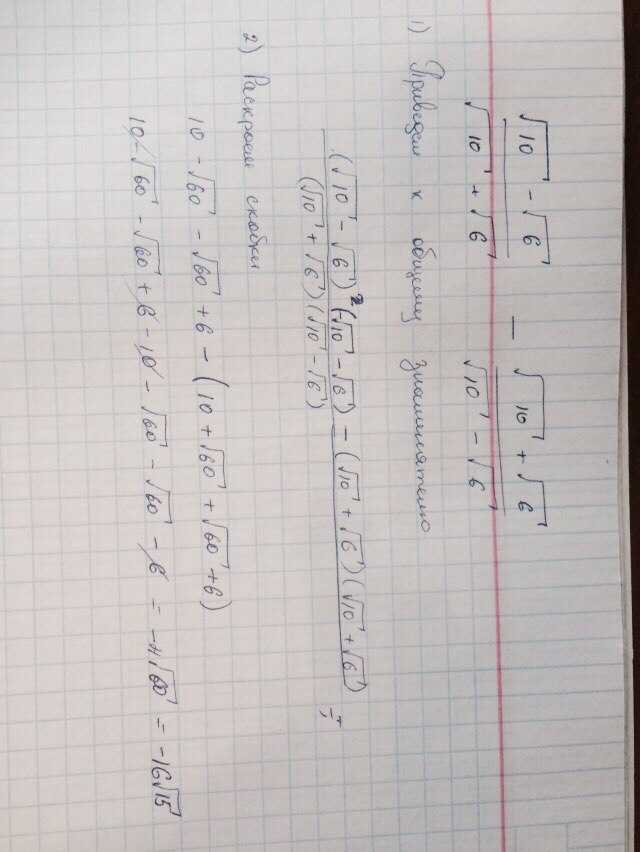 √10 - √6 / √10 + √6 — √10 + √6 / √10 - √6
1) Приведем к общему знаменателю
(√10 - √6)² (√10 - √6) - (√10 + √6)(√10 + √6) / (√10 + √6)(√10 - √6) =
2) Раскроем скобки
10 - √60 - √60 + 6 - (10 + √60 + √60 + 6)
10 - √60 - √60 + 6 - 10 - √60 - √60 - 6 = -4√60 = -16√15